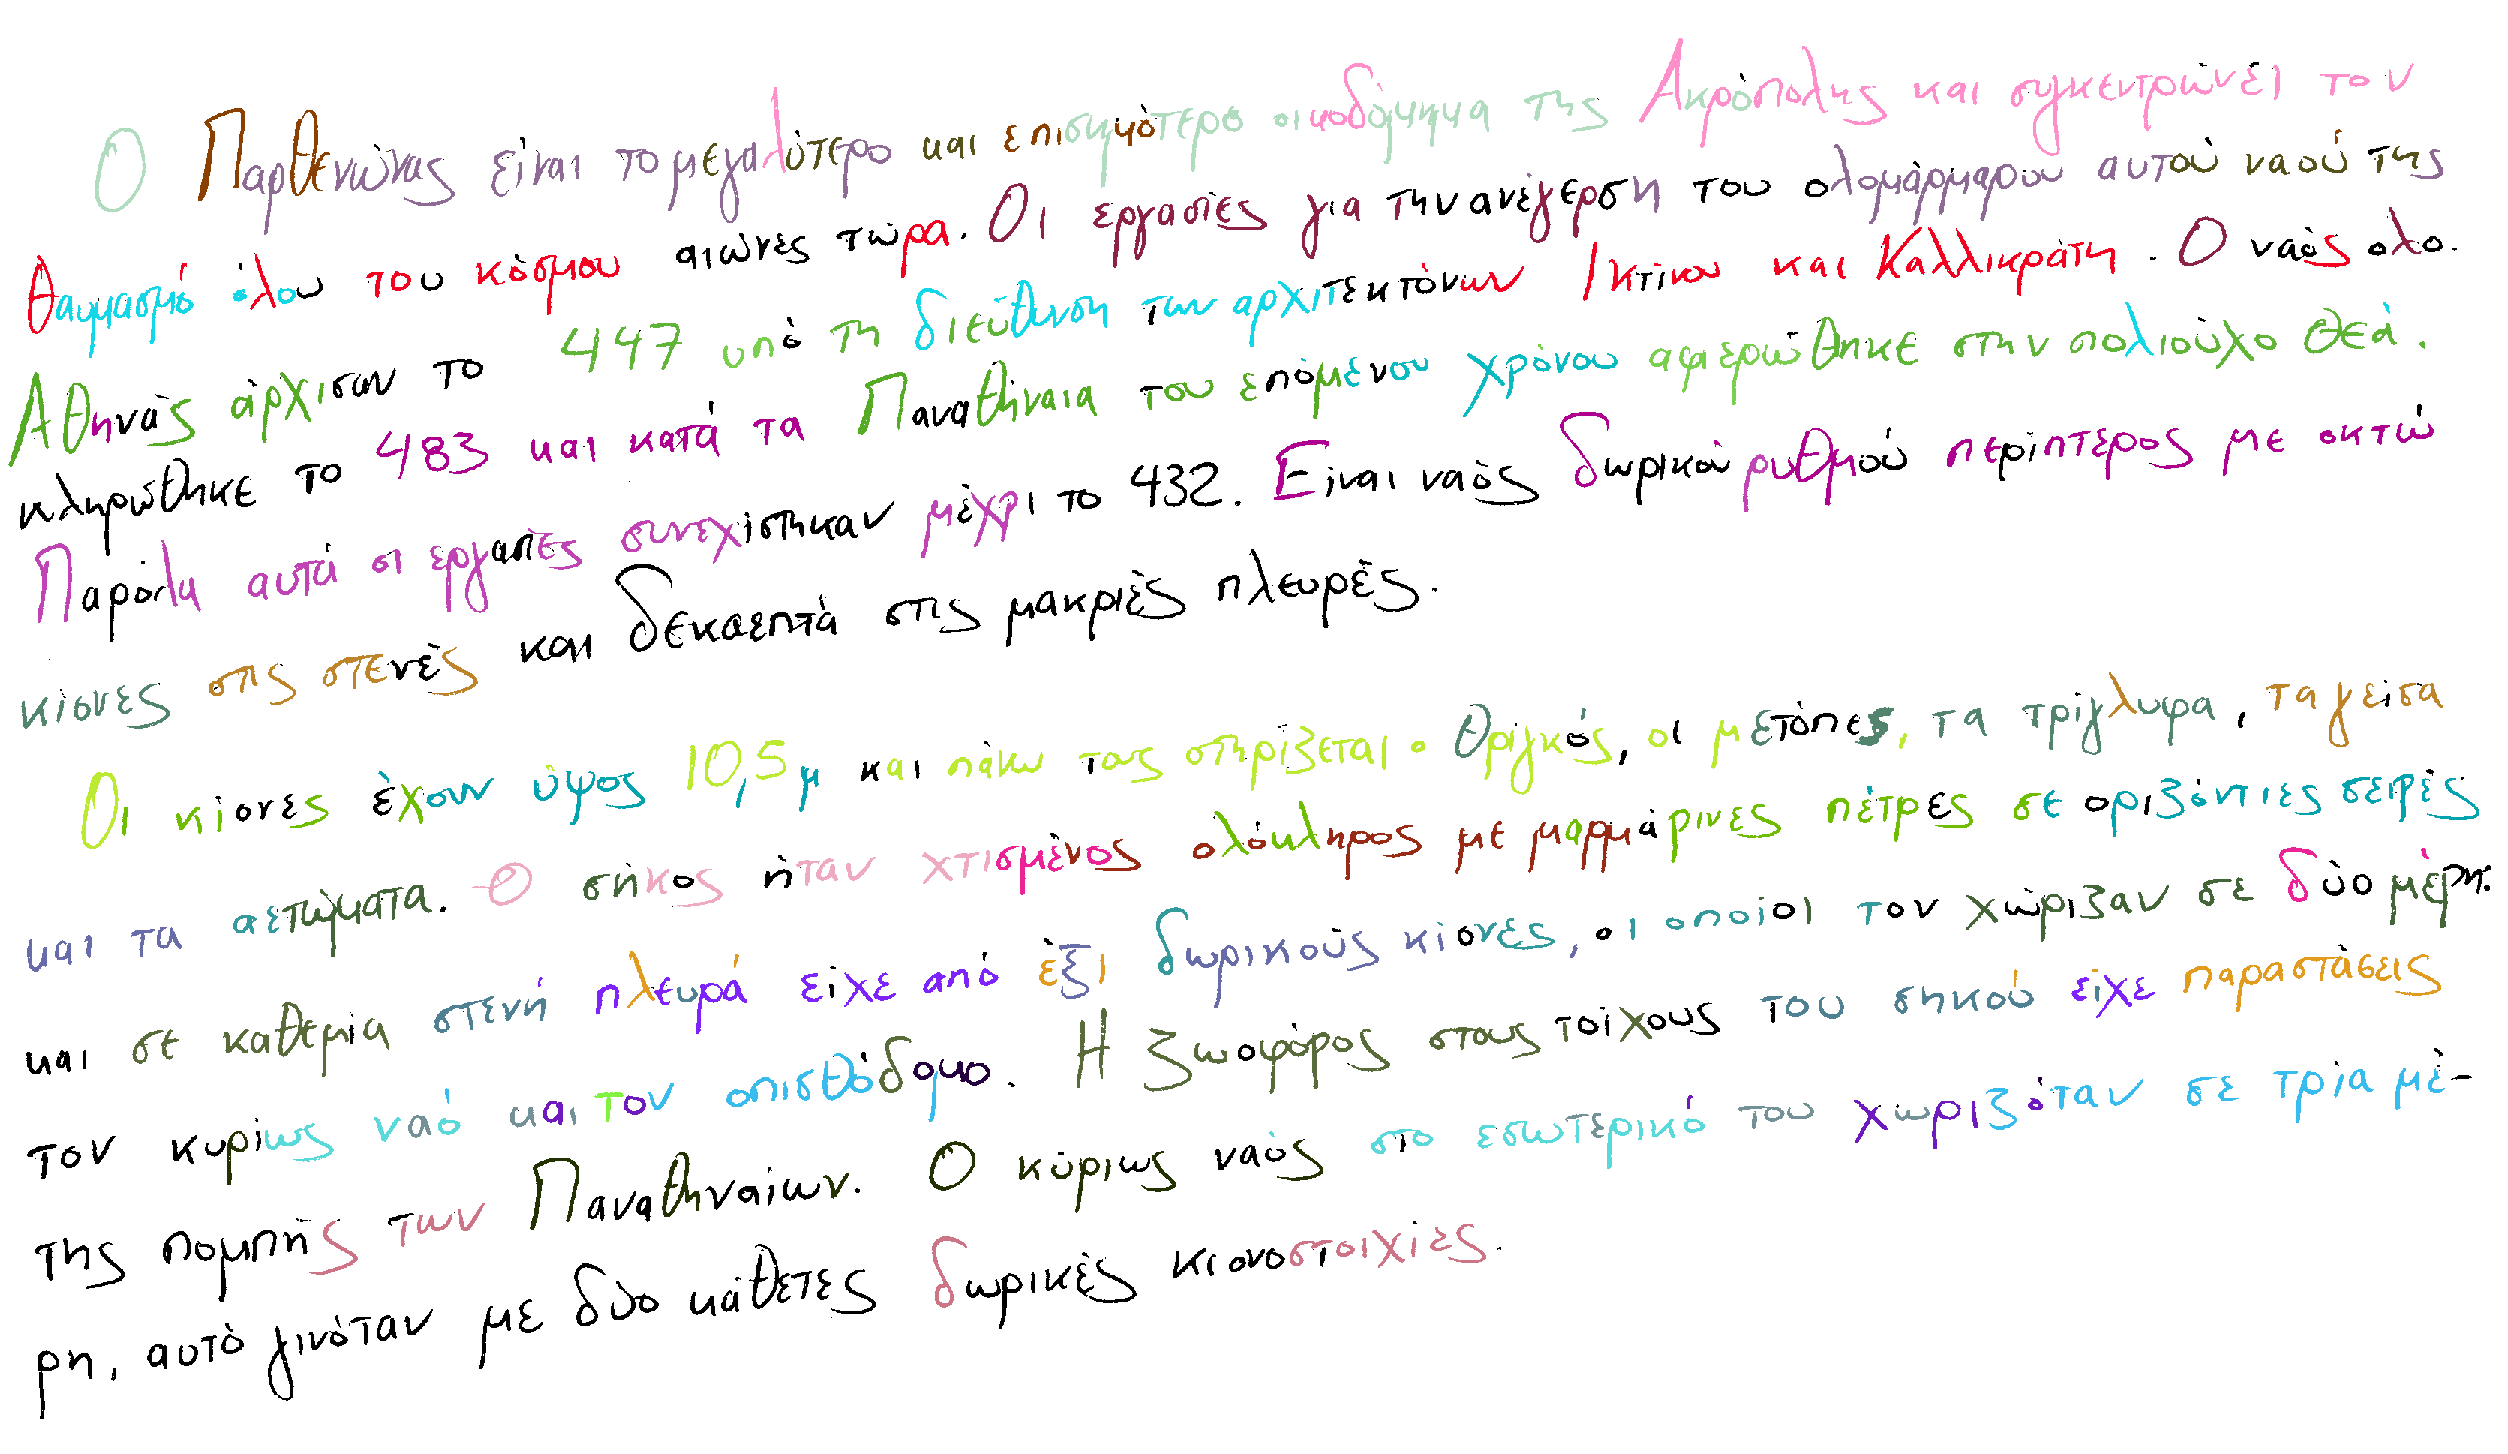 Ο Παρθενώνας είναι το μεγαλύτερο και επισημότερο οικοδόμημα της Ακρόπολης και συγκεντρώνει τον
θαυμασμό όλου του κόσμου αιώνες τώρα. Οι εργασίες για την ανέγερση του ολομάρμαρου αυτού ναού της
Αθηνάς άρχισαν το 447 υπό τη διεύθυνση των αρχιτεκτόνων Ικτίνου και Καλλικράτη. Ο ναός ολο.
κληρώθηκε το 483 και κατά τα Παναθήναια του επόμενου χρόνου αφιερώθηκε στην πολιούχο θεά.
Παρόλα αυτά οι εργασίες συνεχίστηκαν μέχρι το 432. Είναι ναός δωρικού ρυθμού περίπτερος με οκτώ
κίονες στις στενές και δεκαεπτά στις μακριές πλευρές.
Οι κίονες έχουν ύψος 10,5μ και πάνω τους στηρίζεται ο θριγκός, οι μετόπες, τα τρίγλυφα, τα γείσα
και τα αετώματα. Ο σηκος ήταν χτισμένος ολόκληρος με μαρμάρινες πέτρες σε οριζόντιες σειρές
και σε καθεμία στενή πλευρά είχε από έξι δωρικούς κίονες, οι οποίοι τον χώριζαν σε δύο μέρη:
τον κυρίως ναό και τον οπισθόδομο. Η ζωοφόρος στους τοίχους του σηκού είχε παραστάσεις
της πομπής των Παναθηναίων. Ο κύριως ναός στο εσωτερικό του χωριζόταν σε τρία μέ-
ρη, αυτό γινόταν με δύο κάθετες δωρικές κιονοστοιχίες.